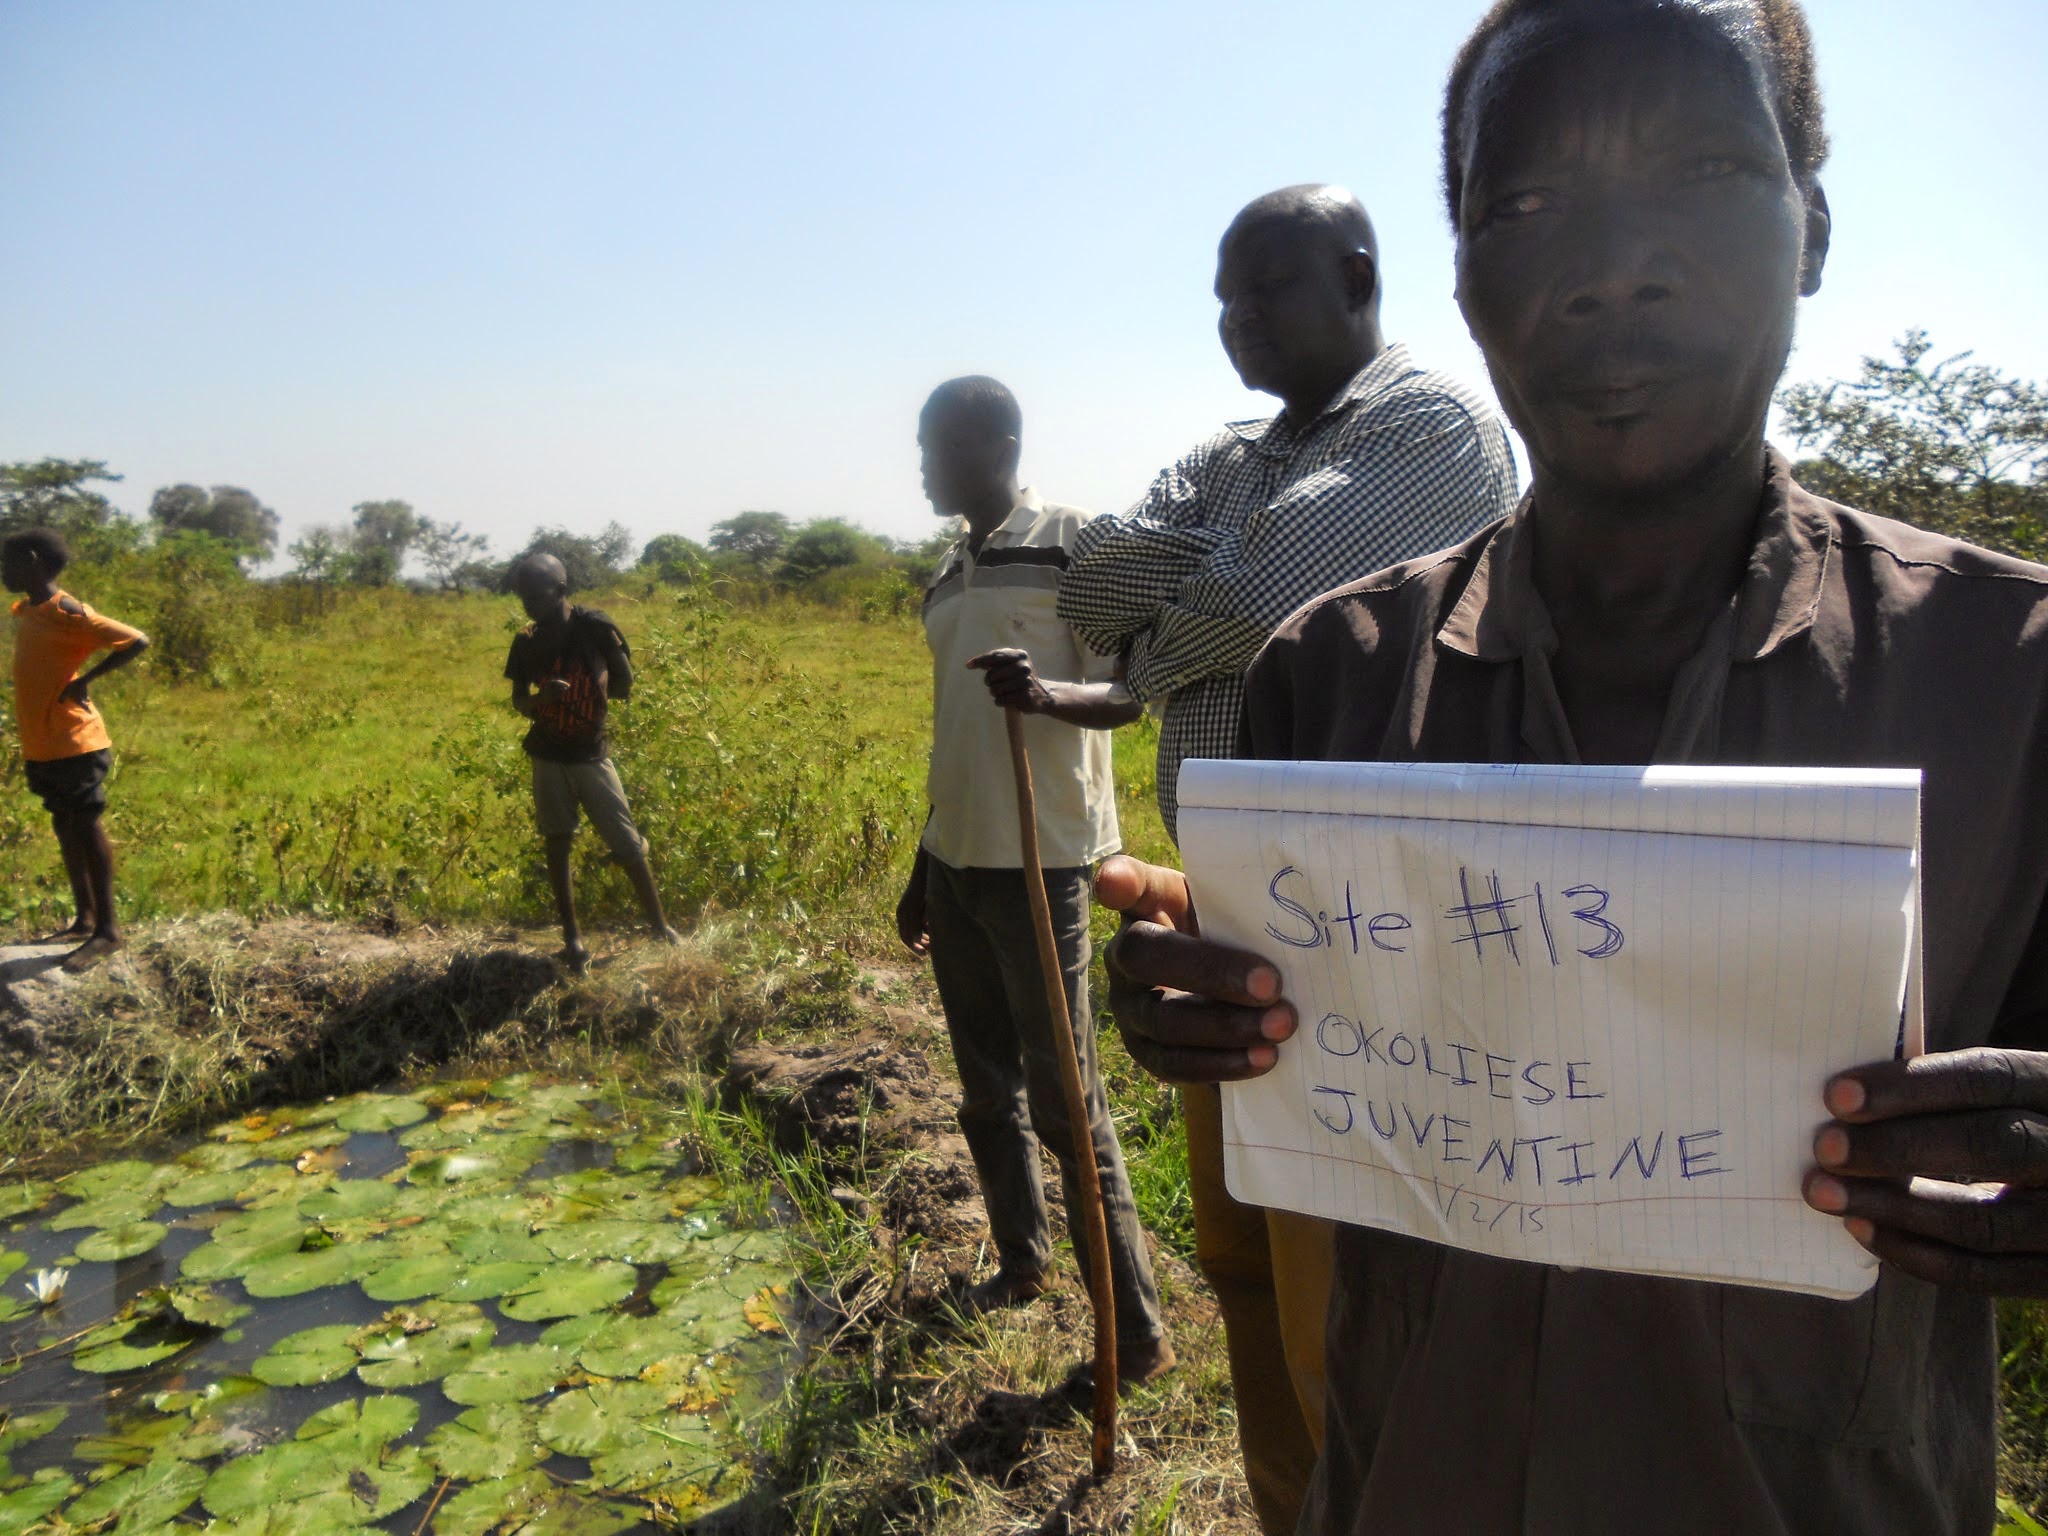 Site #13
OKOLIESE
JUVENTINE
1/2/15